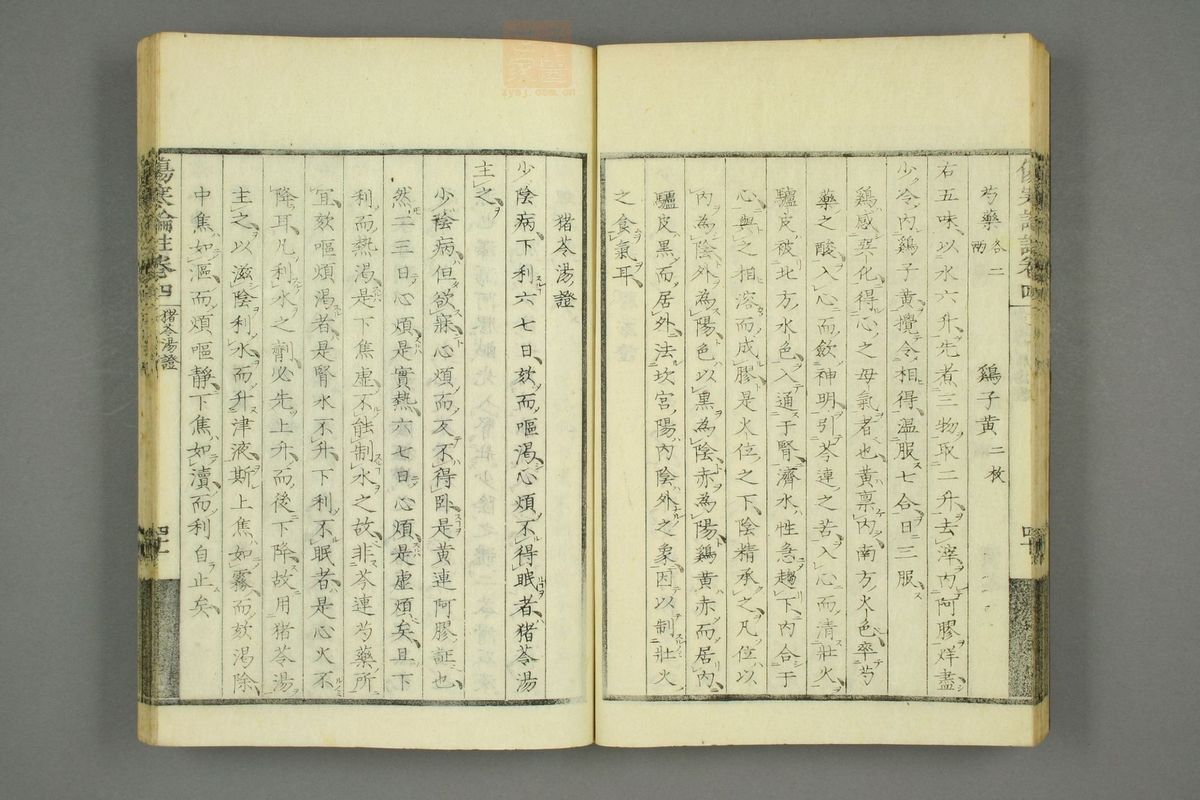 芍藥 各二兩 鷄子黃 二枚
右五味以水六升先煮三物取二升去滓内阿膠烊盡
少冷内鷄子黃攪令相得温服七合日三服
鷄感巽化得心之母氣者也黃禀内南方火色率芍
藥之酸入心而斂神明引芩連之苦入心而清壯火
驢皮被北方水色入通于腎濟水性急趨下内合于
心與之相溶而成膠是火位之下陰精承之凡位以
内為陰外為陽色以黒為陰赤為陽鷄黃赤而居内
驢皮黒而居外法坎宮陽内陰外之象因以制壯火
之食氣耳
猪苓湯證
少陰病下利六七日欬而嘔渴心煩不得眠者猪苓湯
主之
少陰病但欲寐心煩而反不得卧是黃連阿膠証也
然二三日心煩是實熱六七日心煩是虚煩矣且下
利而熱渴是下焦虚不能制水之故非芩連芍藥所
宜欬嘔煩渴者是腎水不升下利不眠者是心火不
降耳凡利水之劑必先上升而後下降故用猪苓湯
主之以滋陰利水而升津液斯上焦如霧而欬渴除
中焦如漚而煩嘔靜下焦如瀆而利自止矣
傷寒論註卷四 猪苓湯證